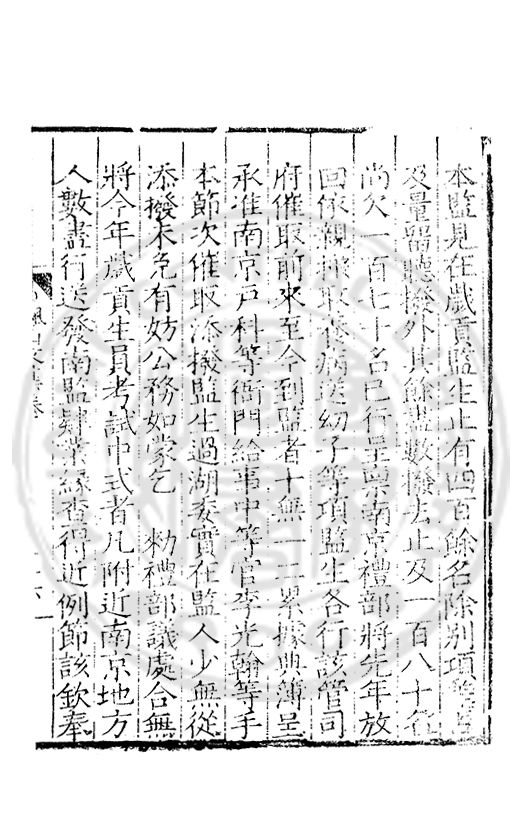 本監見在歲貢監生止有四百餘名除別項等占
及量留聽撥外其餘盡數撥去止及一百八十名
尚欠一百七十名已行呈稟南京禮部將先年放
回依親搬取養病送幼子等項監生各行該管司
府催取前來至今到監者十無一二累據典簿呈
承准南京戶科等衙門給事中等官李光翰等手
本節次催取添撥監生過湖委實在監人少無從
添撥未免有妨公務如蒙乞 勑禮部議處合無
將今年歲貢生員考試中式者凡附近南京地方
人數盡行送發南監肄業緣查得近例節該欽奉